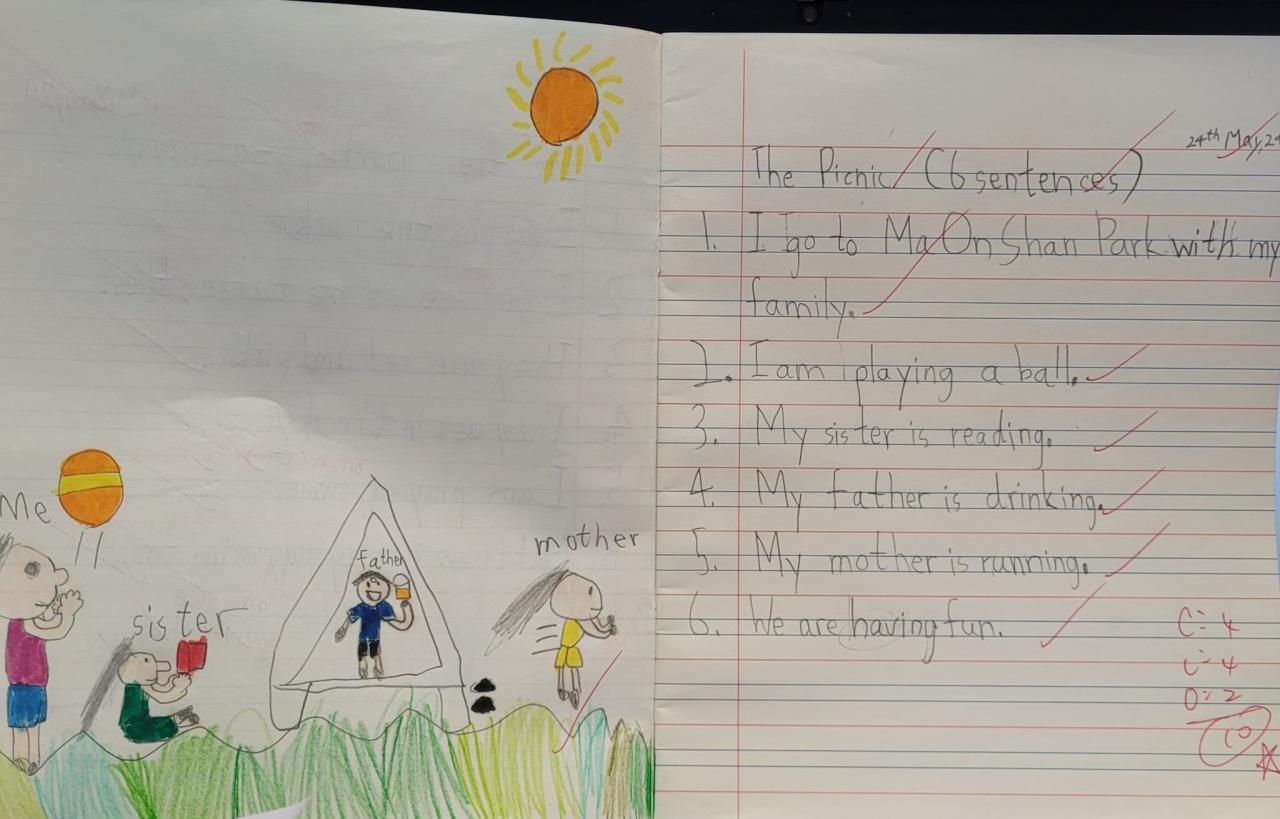 24th May, 24
The Picnic (6 sentences)
1. I go to Ma On Shan Park with my
family.
2. I am playing a ball.
3. My sister is reading.
4. My father is drinking.
5. My mother is running.
6. We are having fun.
C: 4
L: 4
O: 2
10
Me
sister
father
mother